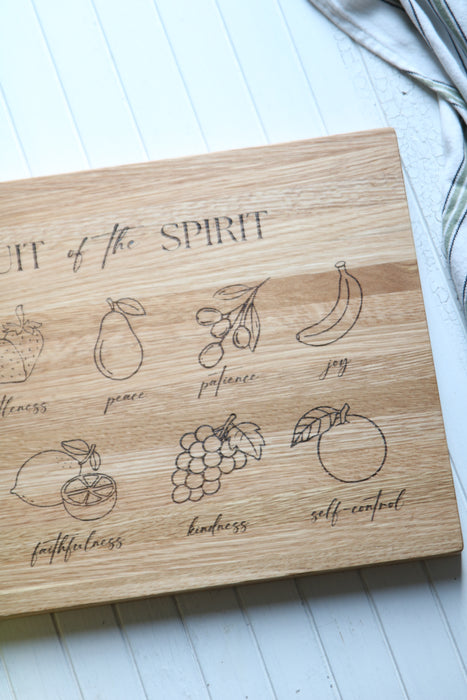 UIT of the SPIRIT
tleness peace patience joy
faithfulness kindness self-control